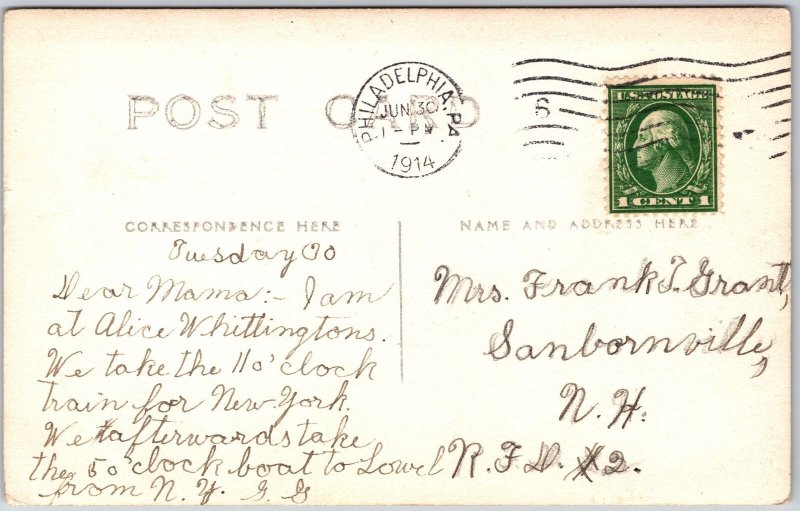 POST CARD
PHILADELPHIA, PA
JUN 30
1 - PM
1914
6
U.S. POSTAGE
1 CENT 1
CORRESPONDENCE HERE
NAME AND ADDRESS HERE
Tuesday 30
Dear Mama:- I am
at Alice Whittingtons.
We take the 11 o'clock
train for New York.
We afterwards take
the 5 o'clock boat to Lowel
from N.Y. G G
Mrs. Frank T. Grant,
Sanbornville,
N.H.
R.F.D. 2.